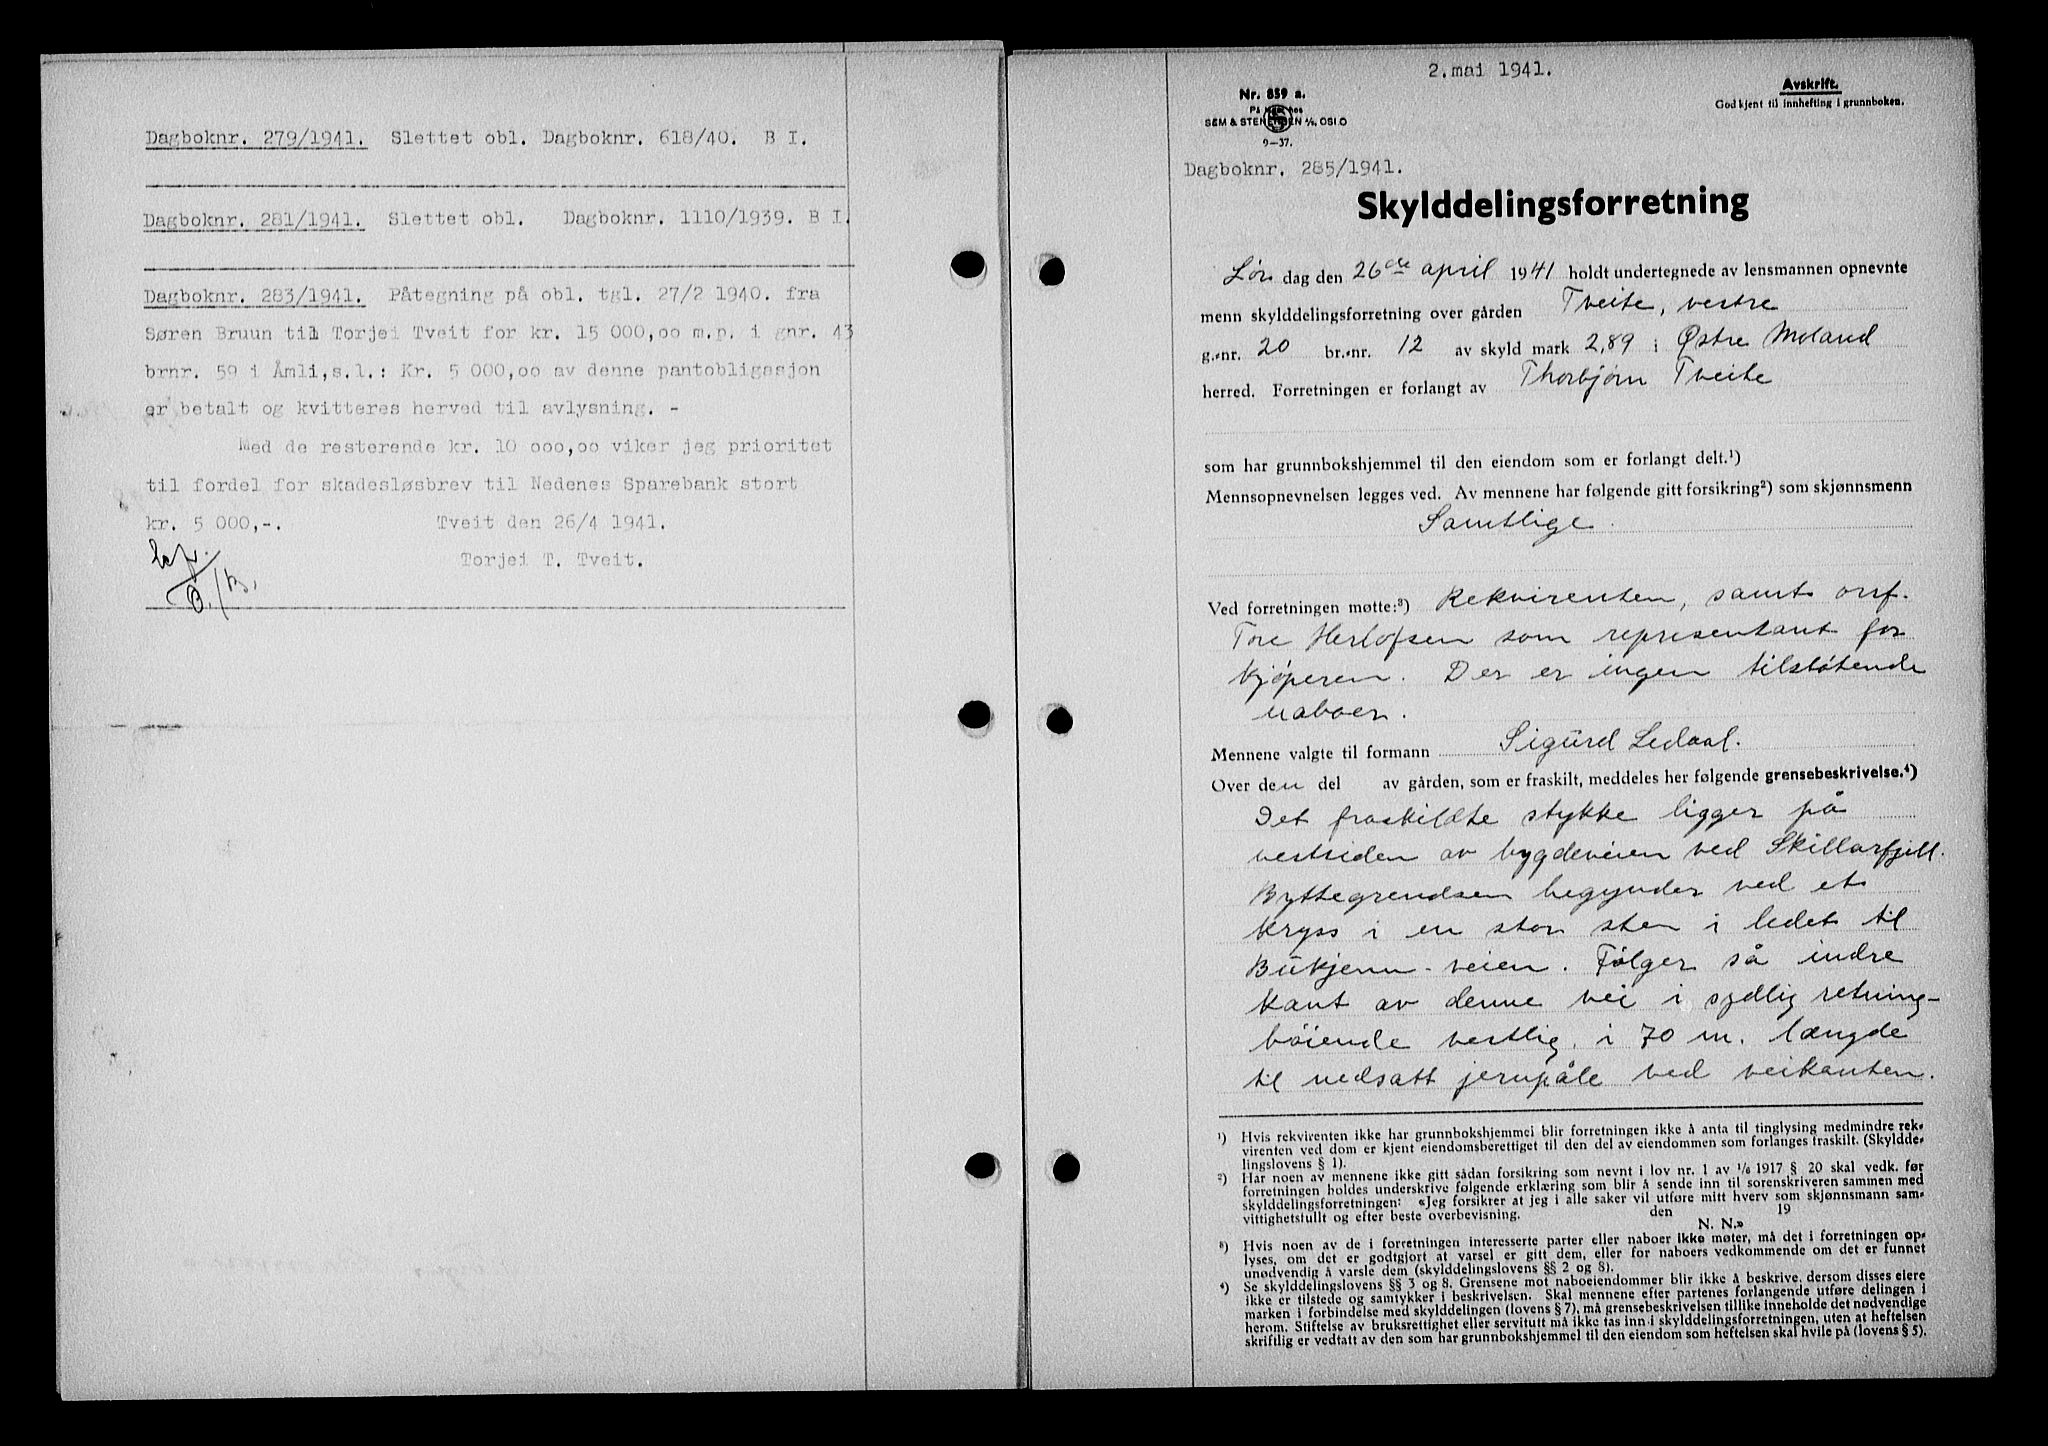 Dagboknr. 279/1941. Slettet obl. Dagboknr. 618/40. B I.
Dagboknr. 281/1941. Slettet obl. Dagboknr. 1110/1939. B I.
Dagboknr. 283/1941. Påtegning på obl. tgl. 27/2 1940. fra
Søren Bruun til Torjei Tveit for kr. 15 000,oo m.p. i gnr. 43
brnr. 59 i Åmli,s.l.: Kr. 5 000,oo av denne pantobligasjon
er betalt og kvitteres herved til avlysning. -
Med de resterende kr. 10 000,oo viker jeg prioritet
til fordel for skadesløsbrev til Nedenes Sparebank stort
kr. 5 000,-. Tveit den 26/4 1941.
Torjei T. Tveit.
2. mai 1941.
Nr. 859 a.
Avskrift.
Godkjent til innhefting i grunnboken.
SEM & STENERSEN A/S, OSLO
9-37.
Dagboknr. 285/1941.
Skylddelingsforretning
Lør dag den 26de april 1941 holdt undertegnede av lensmannen opnevnte
menn skylddelingsforretning over gården Tveite, vestre
g.-nr. 20 br.-nr. 12 av skyld mark 2,89 i Østre Moland
herred. Forretningen er forlangt av Thorbjørn Tveite
som har grunnbokshjemmel til den eiendom som er forlangt delt.¹)
Mennsopnevnelsen legges ved. Av mennene har følgende gitt forsikring²) som skjønnsmenn
Samtlige.
Ved forretningen møtte:³) Rekvirenten, samt orsf.
Tore Herlofsen som representant for
kjøperen. Der er ingen tilstøtende
naboer.
Mennene valgte til formann Sigurd Ledaal.
Over den del av gården, som er fraskilt, meddeles her følgende grensebeskrivelse.⁴)
Det fraskildte stykke ligger på
vestsiden av bygdeveien ved Skillarfjell.
Byttegrendsen begynder ved et
kryss i en stor sten i ledet til
Bukjenn-veien. Følger så indre
kant av denne vei i sydlig retning-
bøiende vestlig. i 70 m. længde
til nedsatt jernpåle ved veikanten.
¹) Hvis rekvirenten ikke har grunnbokshjemmel blir forretningen ikke å anta til tinglysing medmindre rek-
virenten ved dom er kjent eiendomsberettiget til den del av eiendommen som forlanges fraskilt. (Skyldde-
lingslovens § 1).
²) Har noen av mennene ikke gitt sådan forsikring som nevnt i lov nr. 1 av 1/6 1917 § 20 skal vedk. før
forretningen holdes underskrive følgende erklæring som blir å sende inn til sorenskriveren sammen med
skylddelingsforretningen: «Jeg forsikrer at jeg i alle saker vil utføre mitt hverv som skjønnsmann sam-
vittighetsfullt og efter beste overbevisning. den 19
N. N.»
³) Hvis noen av de i forretningen interesserte parter eller naboer ikke møter, må det i forretningen op-
lyses, om det er godtgjort at varsel er gitt dem, eller for naboers vedkommende om det er funnet
unødvendig å varsle dem (skylddelingslovens §§ 2 og 8).
⁴) Se skylddelingslovens §§ 3 og 8. Grensene mot naboeiendommer blir ikke å beskrive, dersom disses eiere
ikke er tilstede og samtykker i beskrivelsen. Skal mennene efter partenes forlangende utføre delingen i
marken i forbindelse med skylddelingen (lovens § 7), må grensebeskrivelsen tillike inneholde det nødvendige
herom. Stiftelse av bruksrettighet eller servitutt må ikke tas inn i skylddelingsforretningen, uten at heftelsen
skriftlig er vedtatt av den som har grunnbokshjemmel til den eiendom som heftelsen skal hvile på (lovens § 5).